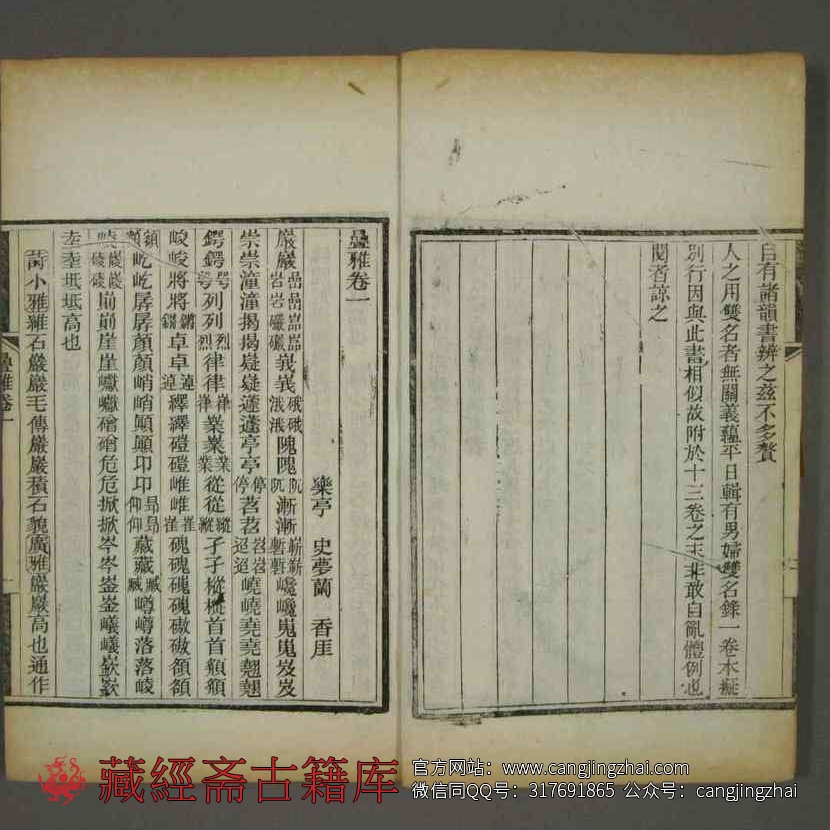 自有諸韻書辨之茲不多贅
人之用雙名者無關義蘊平日輯有男婦雙名錄一卷本擬
別行因與此書相似故附於十三卷之末非敢自亂體例也
閱者諒之
疊雅卷一
樂亭 史夢蘭 香厓
巖巖嵒嵒嵓嵓岩岩礹礹峩峩硪硪涐涐隗隗阢漸漸嶄嶄蹔蹔巉巉嵬嵬岌岌
崇崇潼潼揭揭嶷嶷蘧蘧亭亭停停苕苕岧岧迢迢嶢嶢堯堯翹翹
鍔鍔咢咢列列烈律律嵂嵂業業從從縱縱孑孑樅樅首首頯頯
峻峻將將鏘鏘卓卓逴逴繹繹磑磑唯唯崔崔磈磈磝磝頟頟
屹屹孱孱顏顏峭峭顛顛卬卬昂昂仰仰藏藏臧臧嶟嶟落落崚
崚崖崖巘巘危危掀掀岑岑崟崟嶬嶬嶔嶔
坴坴坻坻高也
詩小雅維石巖巖毛傳巖巖積石貌廣雅巖巖高也通作
疊雅卷一
藏經斋古籍库
官方网站：www.cangjingzhai.com
微信同QQ号：317691865 公众号：cangjingzhai